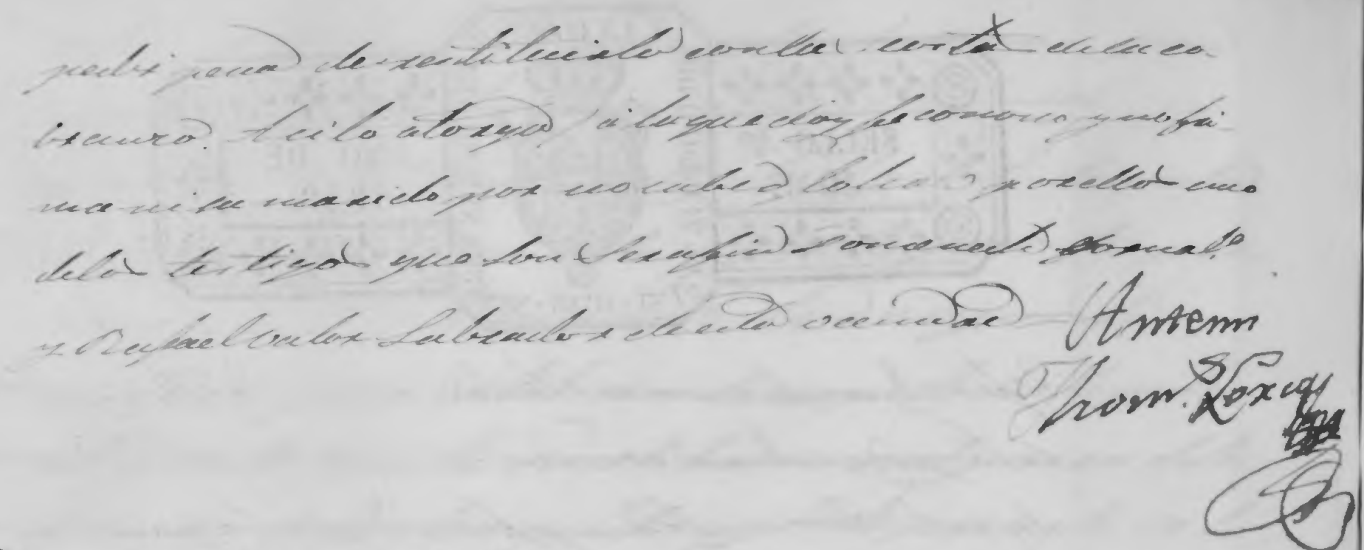 pedir pena de restituirlo con las costas de la co
branza. Asi lo otorgó, á la que doy fe conozco y no fir
ma ni su marido por no saber, lo hizo por ellos uno
delos testigos que son Serafin
y Rafael Valor Labrador de esta vecindad
Antemi
Thom.s Lorca